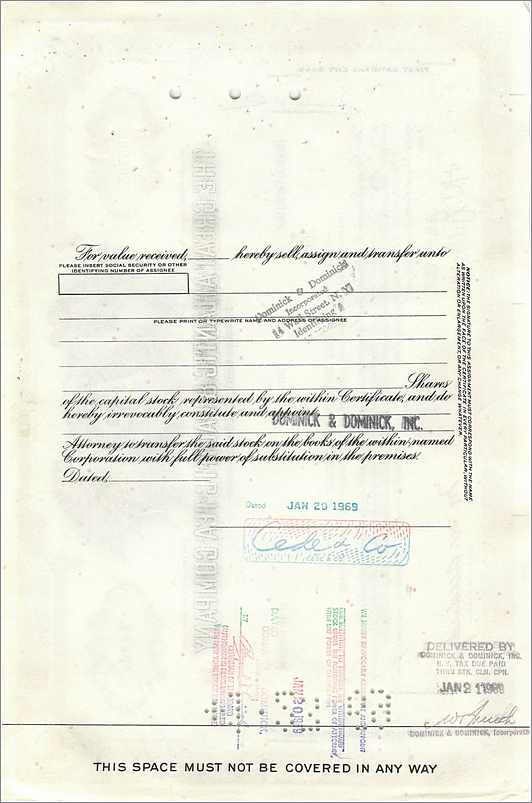 For value received, ______ hereby sell, assign and transfer unto
PLEASE INSERT SOCIAL SECURITY OR OTHER
IDENTIFYING NUMBER OF ASSIGNEE
Dominick & Dominick
Incorporated
14 Wall Street, N. Y.
Identifying
PLEASE PRINT OR TYPEWRITE NAME AND ADDRESS OF ASSIGNEE
Shares
of the capital stock represented by the within Certificate, and do
hereby irrevocably constitute and appoint
DOMINICK & DOMINICK, INC.
Attorney to transfer the said stock on the books of the within named
Corporation with full power of substitution in the premises.
Dated
NOTICE: THE SIGNATURE TO THIS ASSIGNMENT MUST CORRESPOND WITH THE NAME
AS WRITTEN UPON THE FACE OF THE CERTIFICATE IN EVERY PARTICULAR, WITHOUT
ALTERATION OR ENLARGEMENT, OR ANY CHANGE WHATEVER.
Dated JAN 29 1969
Cede & Co
DELIVERED BY
DOMINICK & DOMINICK, INC.
N. Y. TAX DUE PAID
THRU STK. CLR. CPN.
JAN 2 1 1969
DOMINICK & DOMINICK, Incorporated
THIS SPACE MUST NOT BE COVERED IN ANY WAY